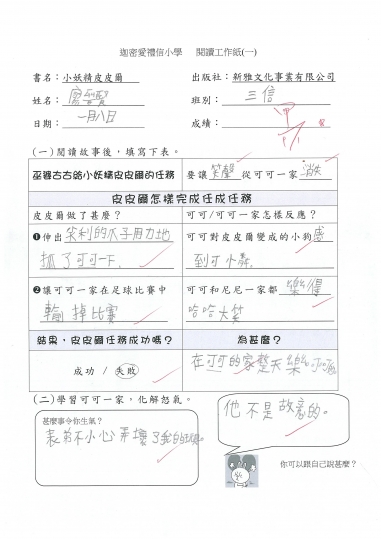 迦密愛禮信小學 閱讀工作紙(一)
書名：小妖精皮皮爾 出版社：新雅文化事業有限公司
姓名： 班別：三信
日期：一月八日 成績：
(一)閱讀故事後，填寫下表。
巫婆古古給小妖精皮皮爾的任務 要讓笑聲從可可一家消失
皮皮爾怎樣完成任成任務
皮皮爾做了甚麼？ 可可/可可一家怎樣反應？
❶伸出尖利的爪子用力地 可可對皮皮爾變成的小狗感
抓了可可一下. 到可憐.
❷讓可可一家在足球比賽中 可可和尼尼一家都樂得
輸掉比賽 哈哈大笑
結果，皮皮爾任務成功嗎？ 為甚麼？
成功 / 失敗 在可可的家整天樂呵呵
(二)學習可可一家，化解怒氣。
甚麼事令你生氣？
表弟不小心弄壞了我的
他不是故意的。
你可以跟自己說甚麼？